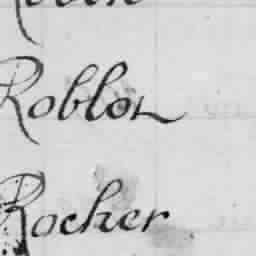 Roblot
Rocher